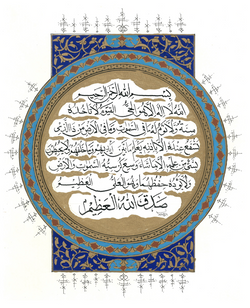 بسم الله الرحمن الرحيم
الله لا إله إلا هو الحي القيوم لا تأخذه
سنة ولا نوم له ما في السموات وما في الأرض من ذا الذي
يشفع عنده إلا بإذنه يعلم ما بين أيديهم وما خلفهم ولا يحيطون
بشيء من علمه إلا بما شاء وسع كرسيه السموات والأرض
ولا يؤده حفظهما وهو العلي العظيم
صدق الله العظيم